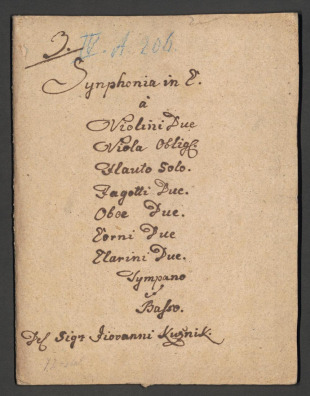 3. IV. A. 206
Synphonia in C.
à
Violini Due
Viola Oblig:
Flauto Solo.
Fagotti Due.
Oboe Due.
Corni Due
Clarini Due.
Tympano
è
Basso.
Del Sigr Giovanni